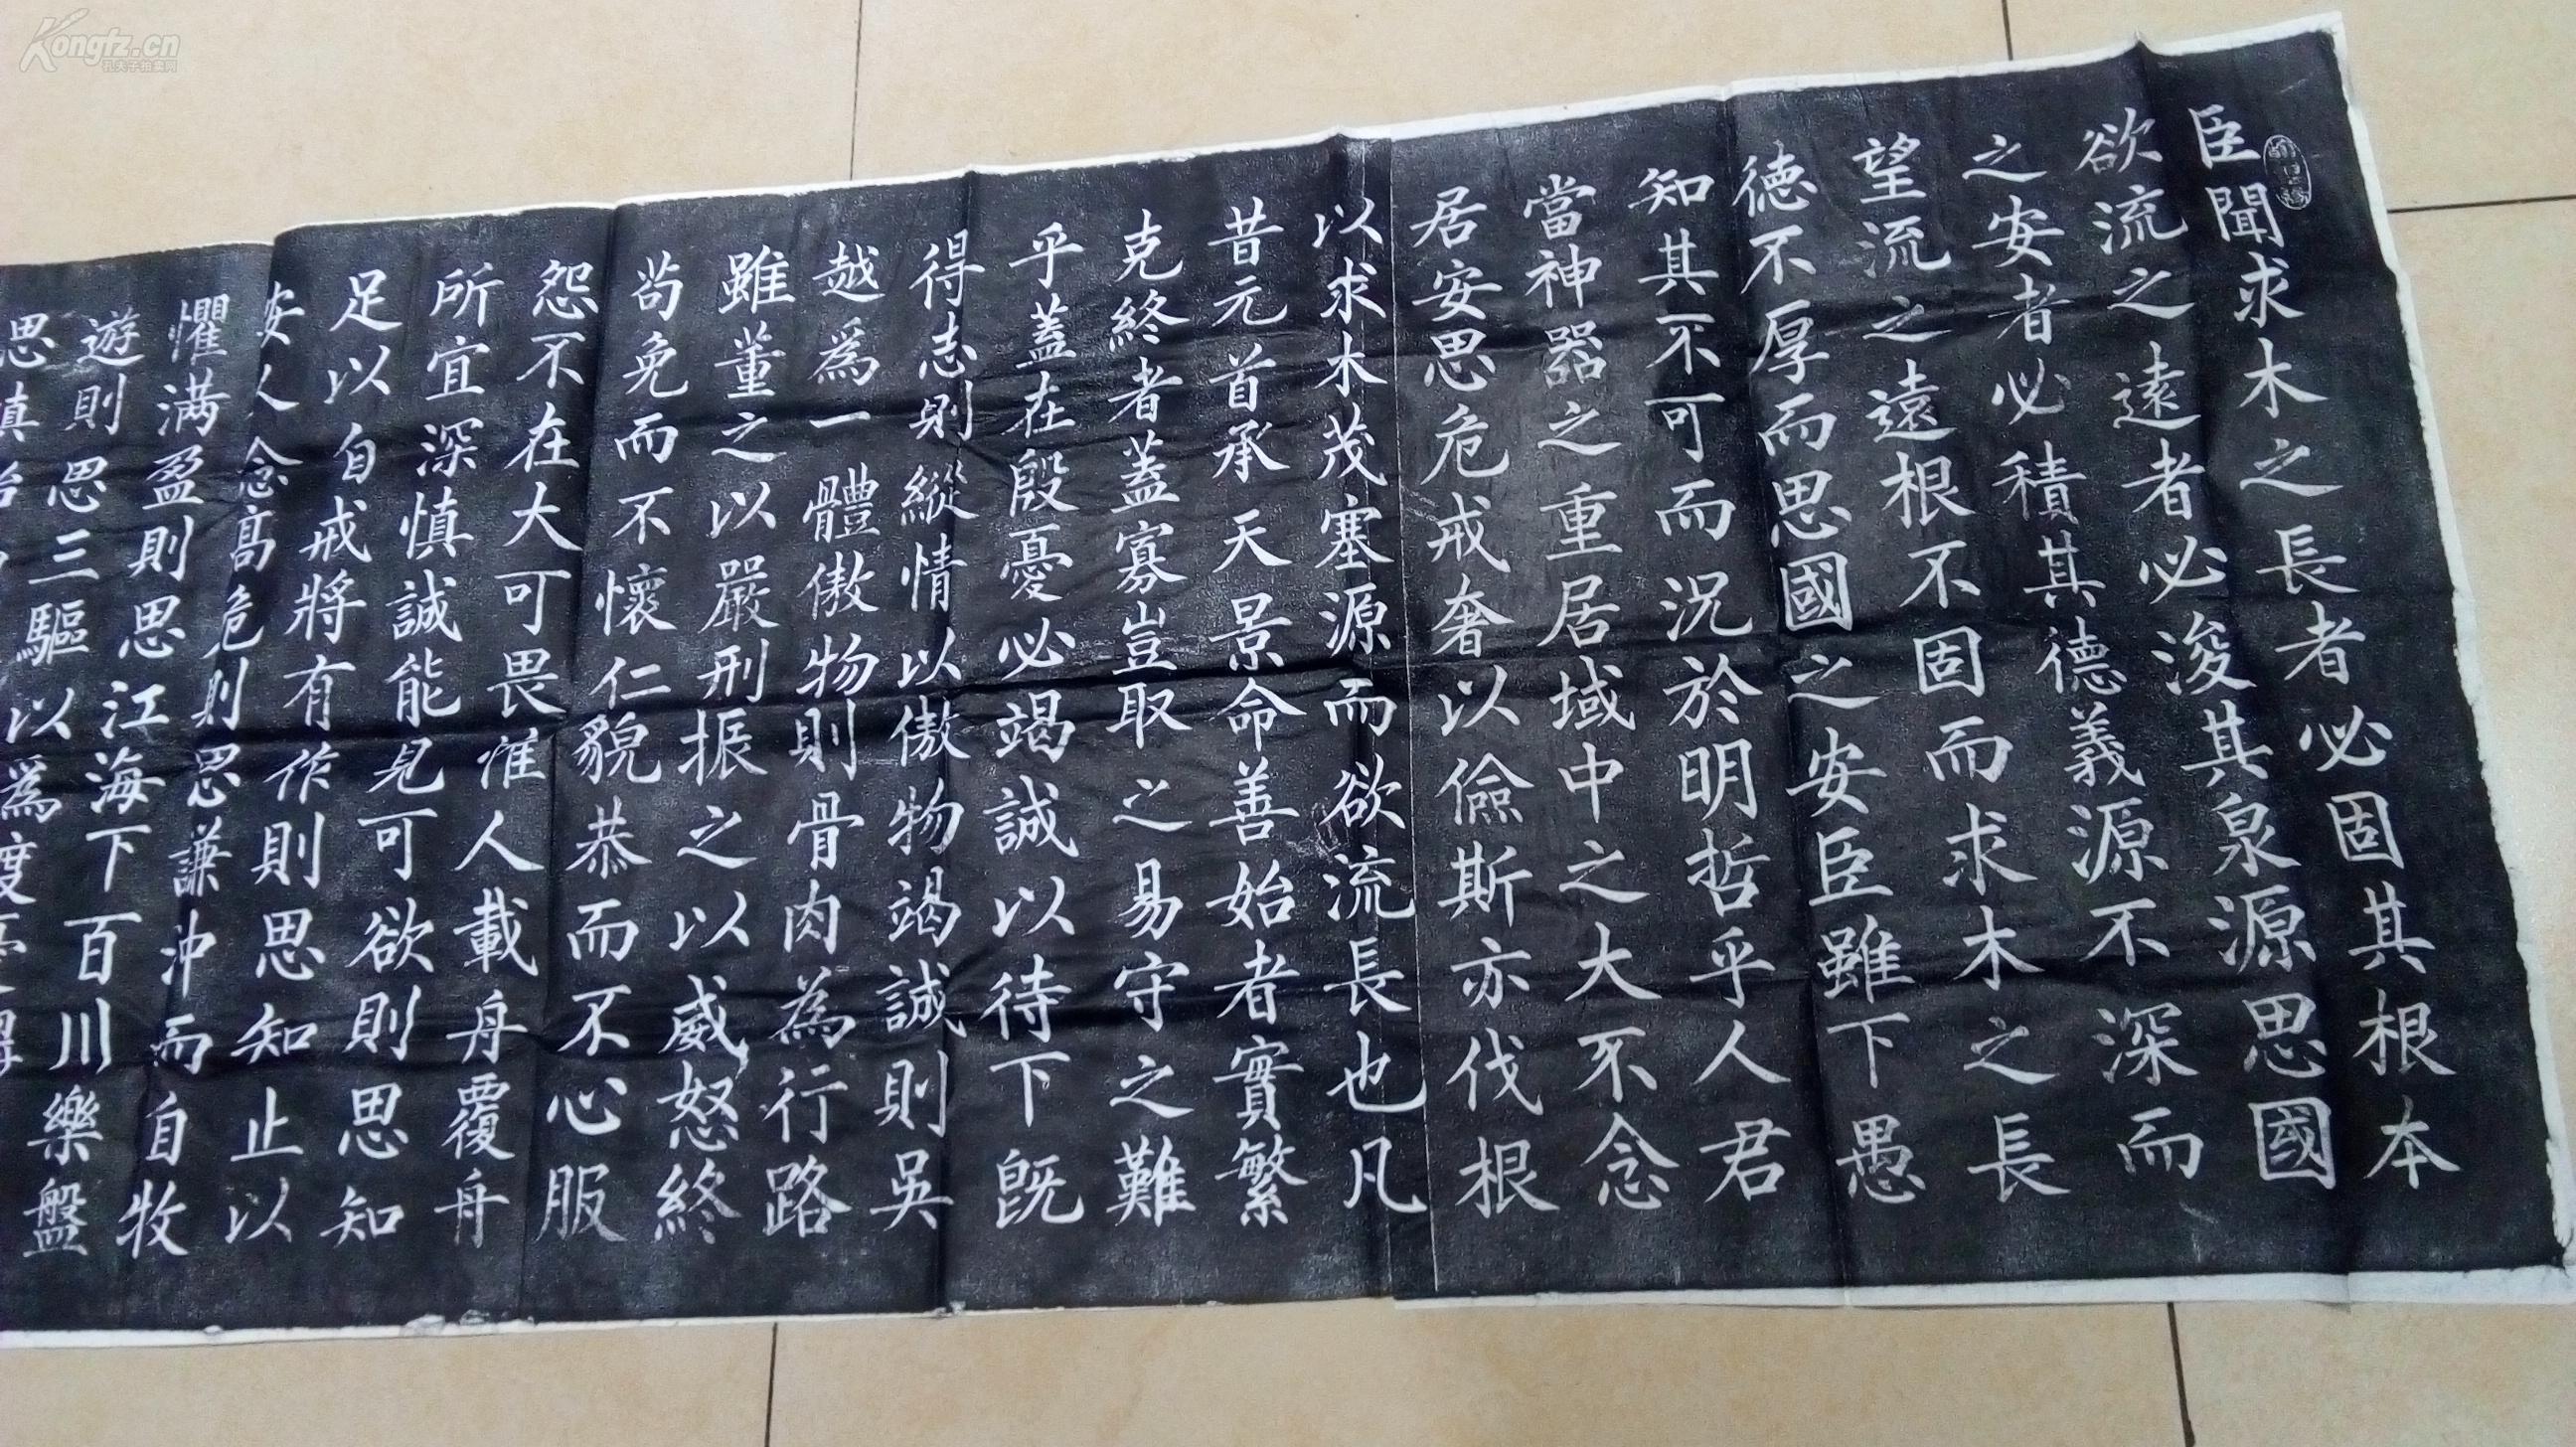 臣聞求木之長者必固其根本
欲流之遠者必浚其泉源思國
之安者必積其德義源不深而
望流之遠根不固而求木之長
德不厚而思國之安臣雖下愚
知其不可而況於明哲乎人君
當神器之重居域中之大不念
居安思危戒奢以儉斯亦伐根
以求木茂塞源而欲流長也凡
昔元首承天景命善始者實繁
克終者蓋寡豈取之易守之難
乎蓋在殷憂必竭誠以待下既
得志則縱情以傲物竭誠則吳
越爲一體傲物則骨肉為行路
雖董之以嚴刑振之以威怒終
苟免而不懷仁貌恭而不心服
怨不在大可畏惟人載舟覆舟
所宜深慎誠能見可欲則思知
足以自戒將有作則思知止以
安人念高危則思謙沖而自牧
懼满盈則思江海下百川樂盤
遊則思三驅以爲度
思慎
Kongfz.cn
孔夫子拍卖网